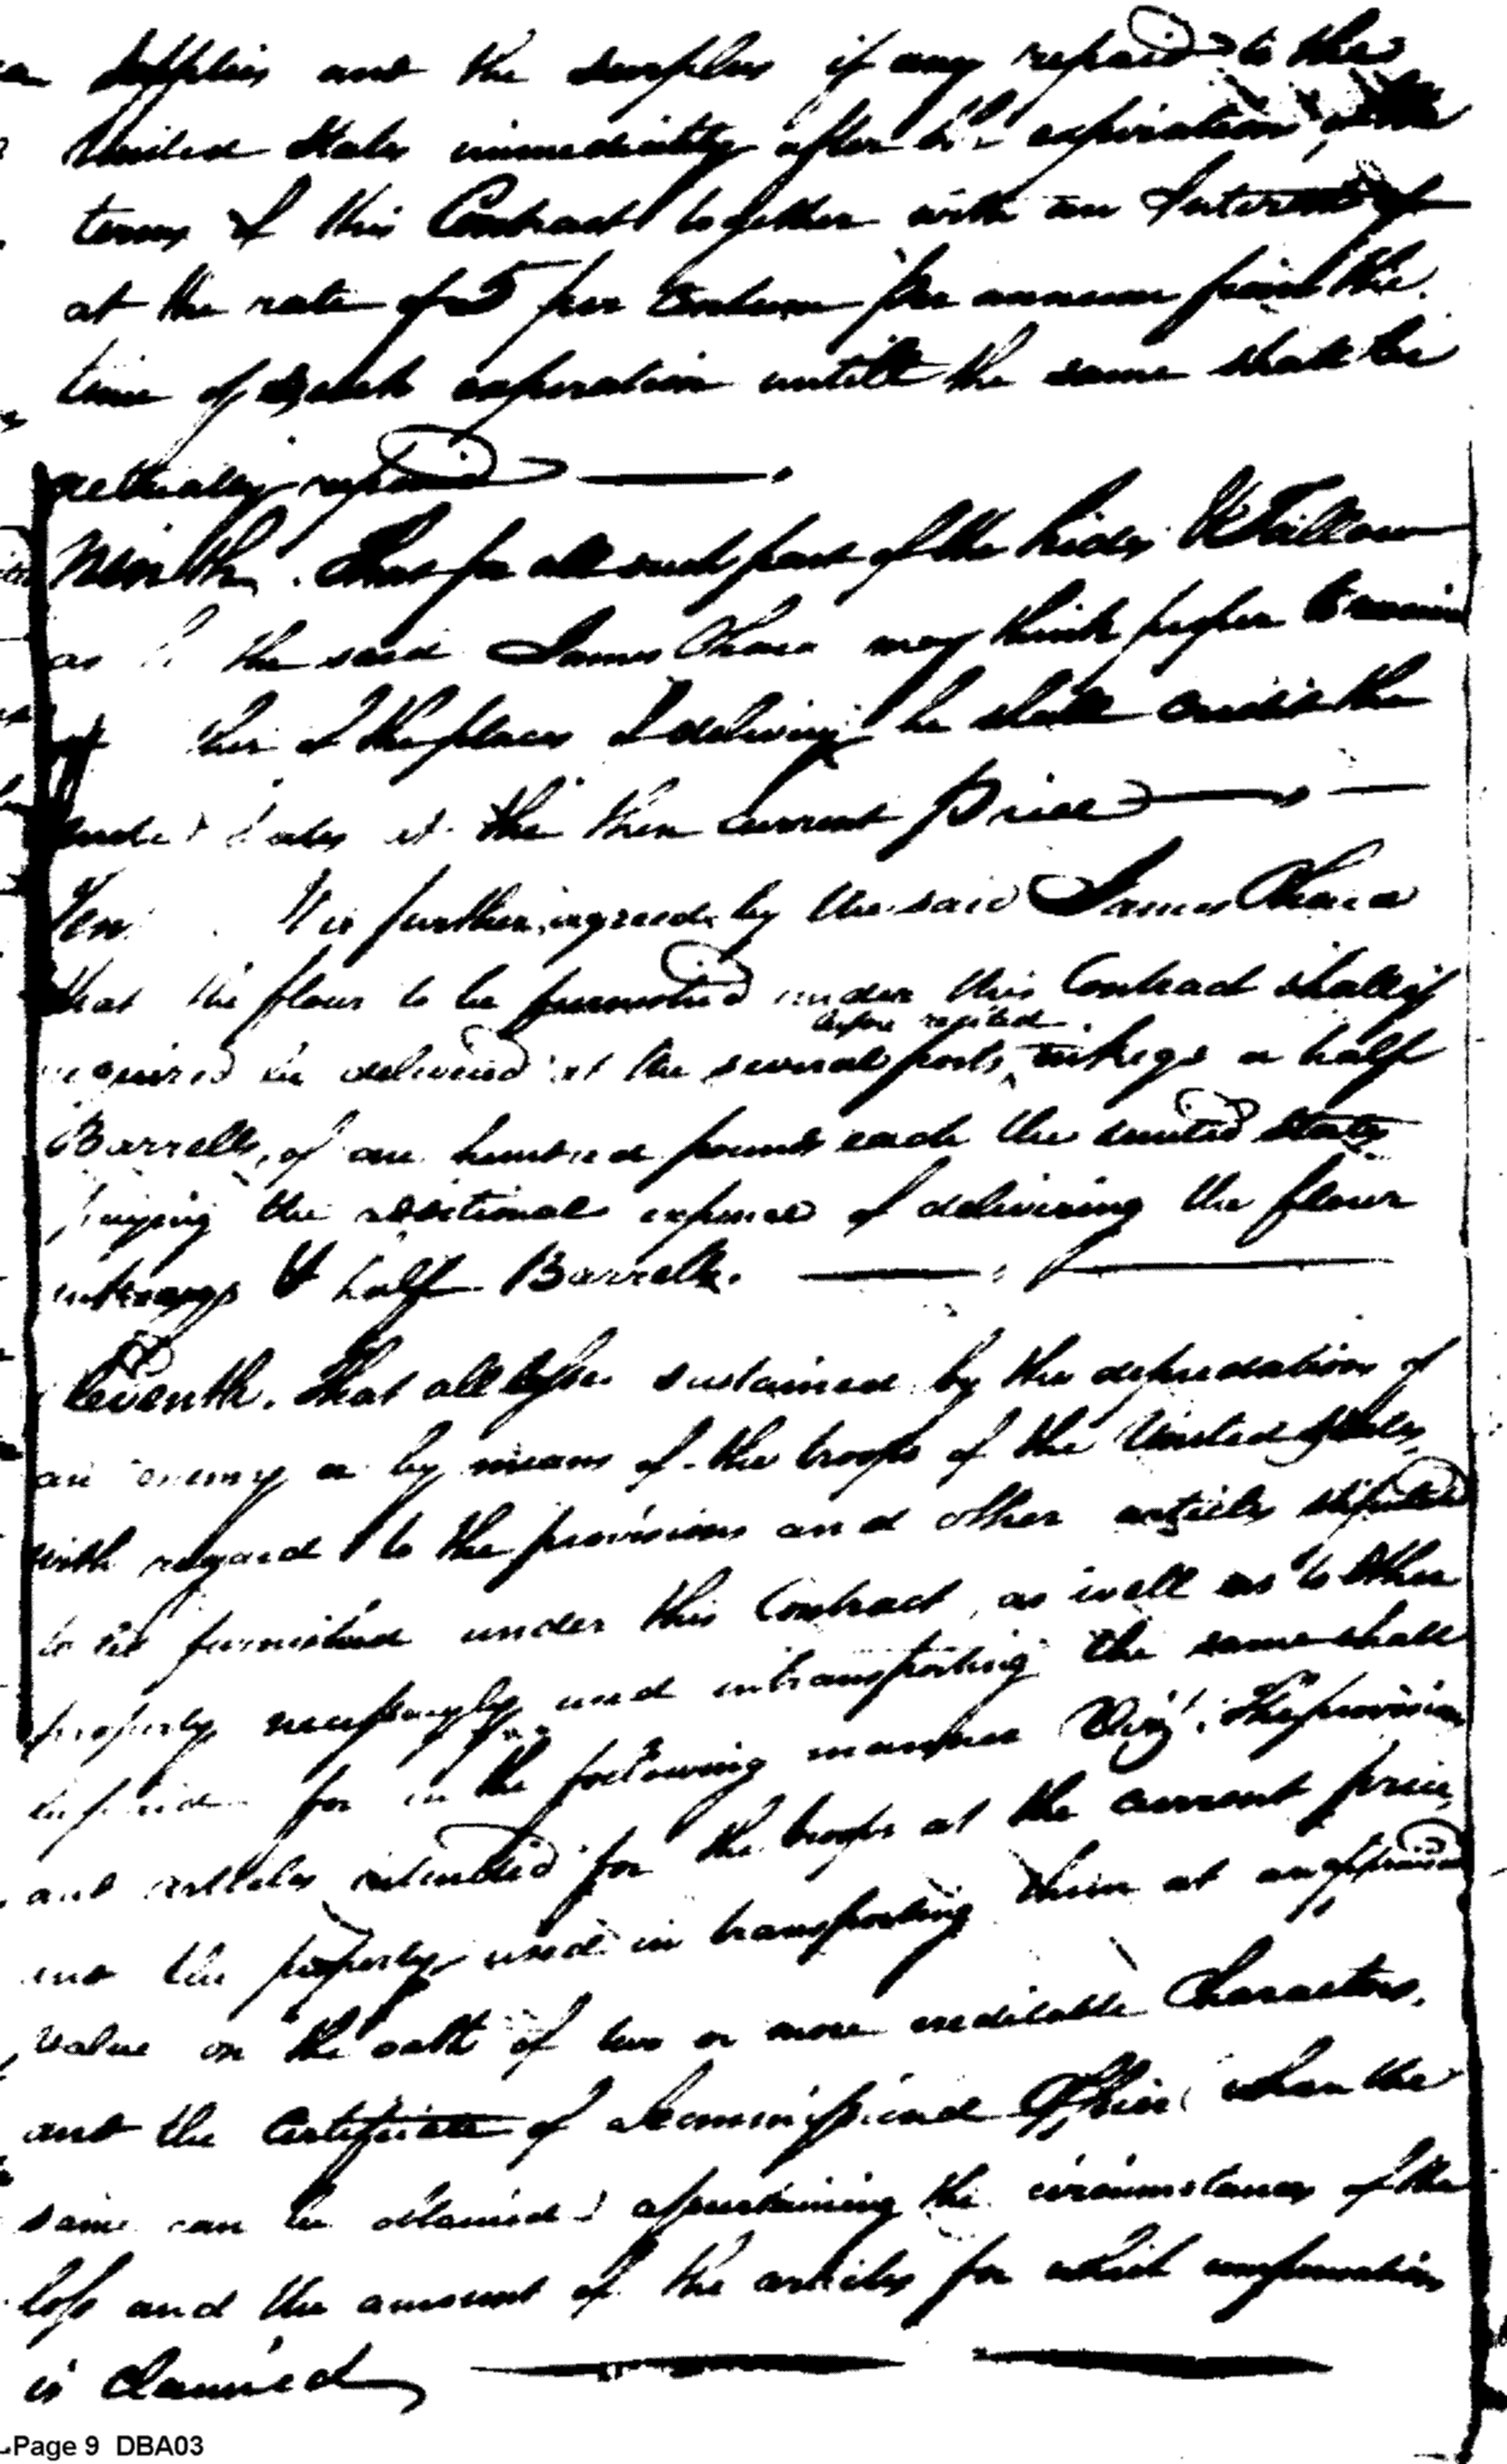 supplies and the surplus if any repaid to the
United States immediately after the expiration of the
term of this Contract together with an Interest
at the rate of 5 per Centum per annum from the
time of such expiration untill the same shall be
actually repaid
Ninth. That for all such part of the hides & Tallow
as the said James Ohara may think proper to
the place of delivery he shall credit the
United States at the then current Price
Ten It is further agreed by the said James Ohara
that the flour to be furnished under this Contract shall if
before recited
required be delivered at the several posts in kegs or half
Barrells, of one hundred pounds each the united States
paying the additional expense of delivering the flour
in kegs & half Barrells.
Eleventh. That all losses sustained by the depredations of
an enemy or by means of the troops of the United States,
with regard to the provisions and other articles stipulated
to be furnished under this Contract, as well as to other
property necessarily used in transporting the same shall
be paid for in the following manner Vizt. The provisions
and articles intended for the troops at the current price,
and the property used in transporting them at an appraised
value on the oath of two or more creditable Characters,
and the Certificate of a commissioned Officer when the
same can be obtained ascertaining the circumstances of the
loss and the amount of the articles for which compensation
is claimed
Page 9 DBA03